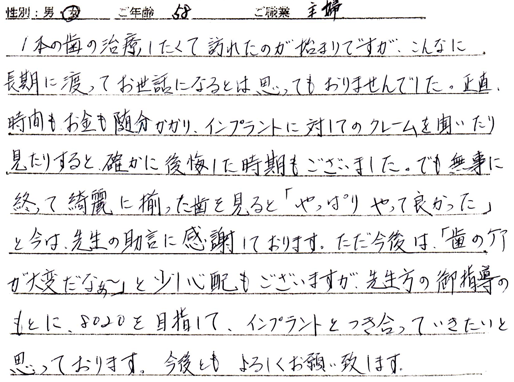 性別：男 女 ご年齢 58 ご職業 主婦
1本の歯の治療したくて訪れたのが始まりですが、こんなに
長期に渡ってお世話になるとは思ってもおりませんでした。正直、
時間もお金も随分かかり、インプラントに対してのクレームを聞いたり
見たりすると、確かに後悔した時期もございました。でも無事に
終って綺麗に揃った歯を見ると「やっぱりやって良かった」
と今は、先生の助言に感謝しております。ただ今後は、「歯のケア
が大変だなぁ〜」と少し心配もございますが、先生方の御指導の
もとに、8020を目指して、インプラントとつき合っていきたいと
思っております。今後ともよろしくお願い致します。